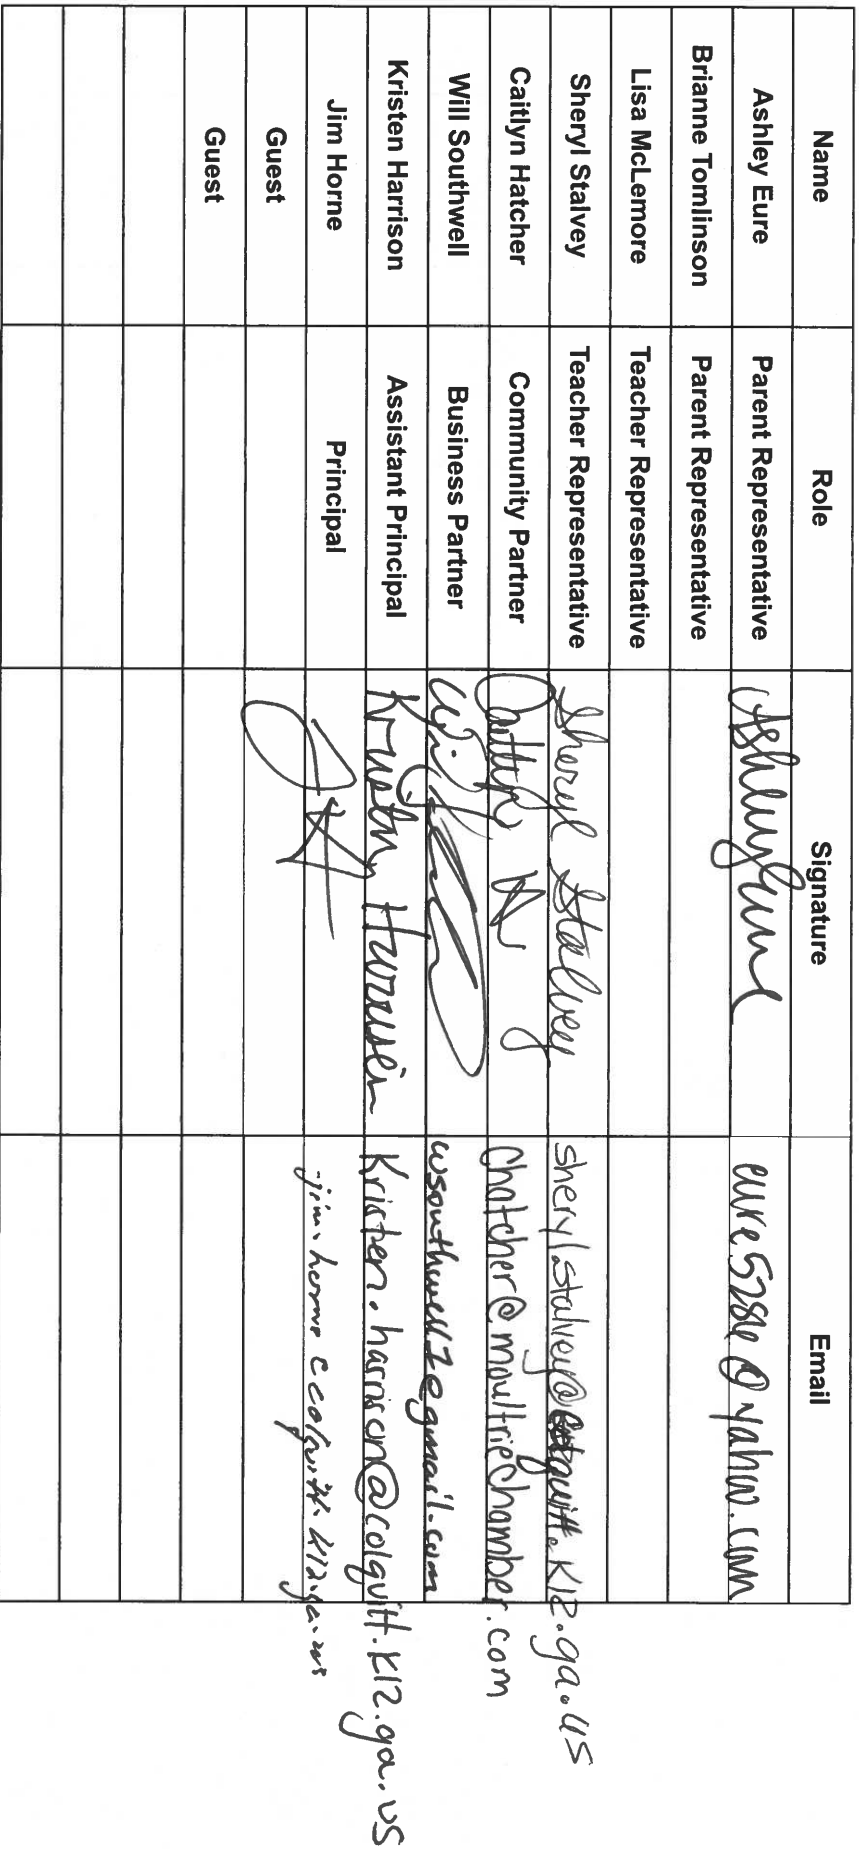 Name Role Signature Email
Ashley Eure Parent Representative Ashley Eure
Brianne Tomlinson Parent Representative
Lisa McLemore Teacher Representative
Sheryl Stalvey Teacher Representative Sheryl Stalvey sheryl.stalvey@colquitt.k12.ga.us
Caitlyn Hatcher Community Partner chatcher@moultriechamber.com
Will Southwell Business Partner
Kristen Harrison Assistant Principal Kristen Harrison Kristen.harrison@colquitt.k12.ga.us
Jim Horne Principal
Guest
Guest